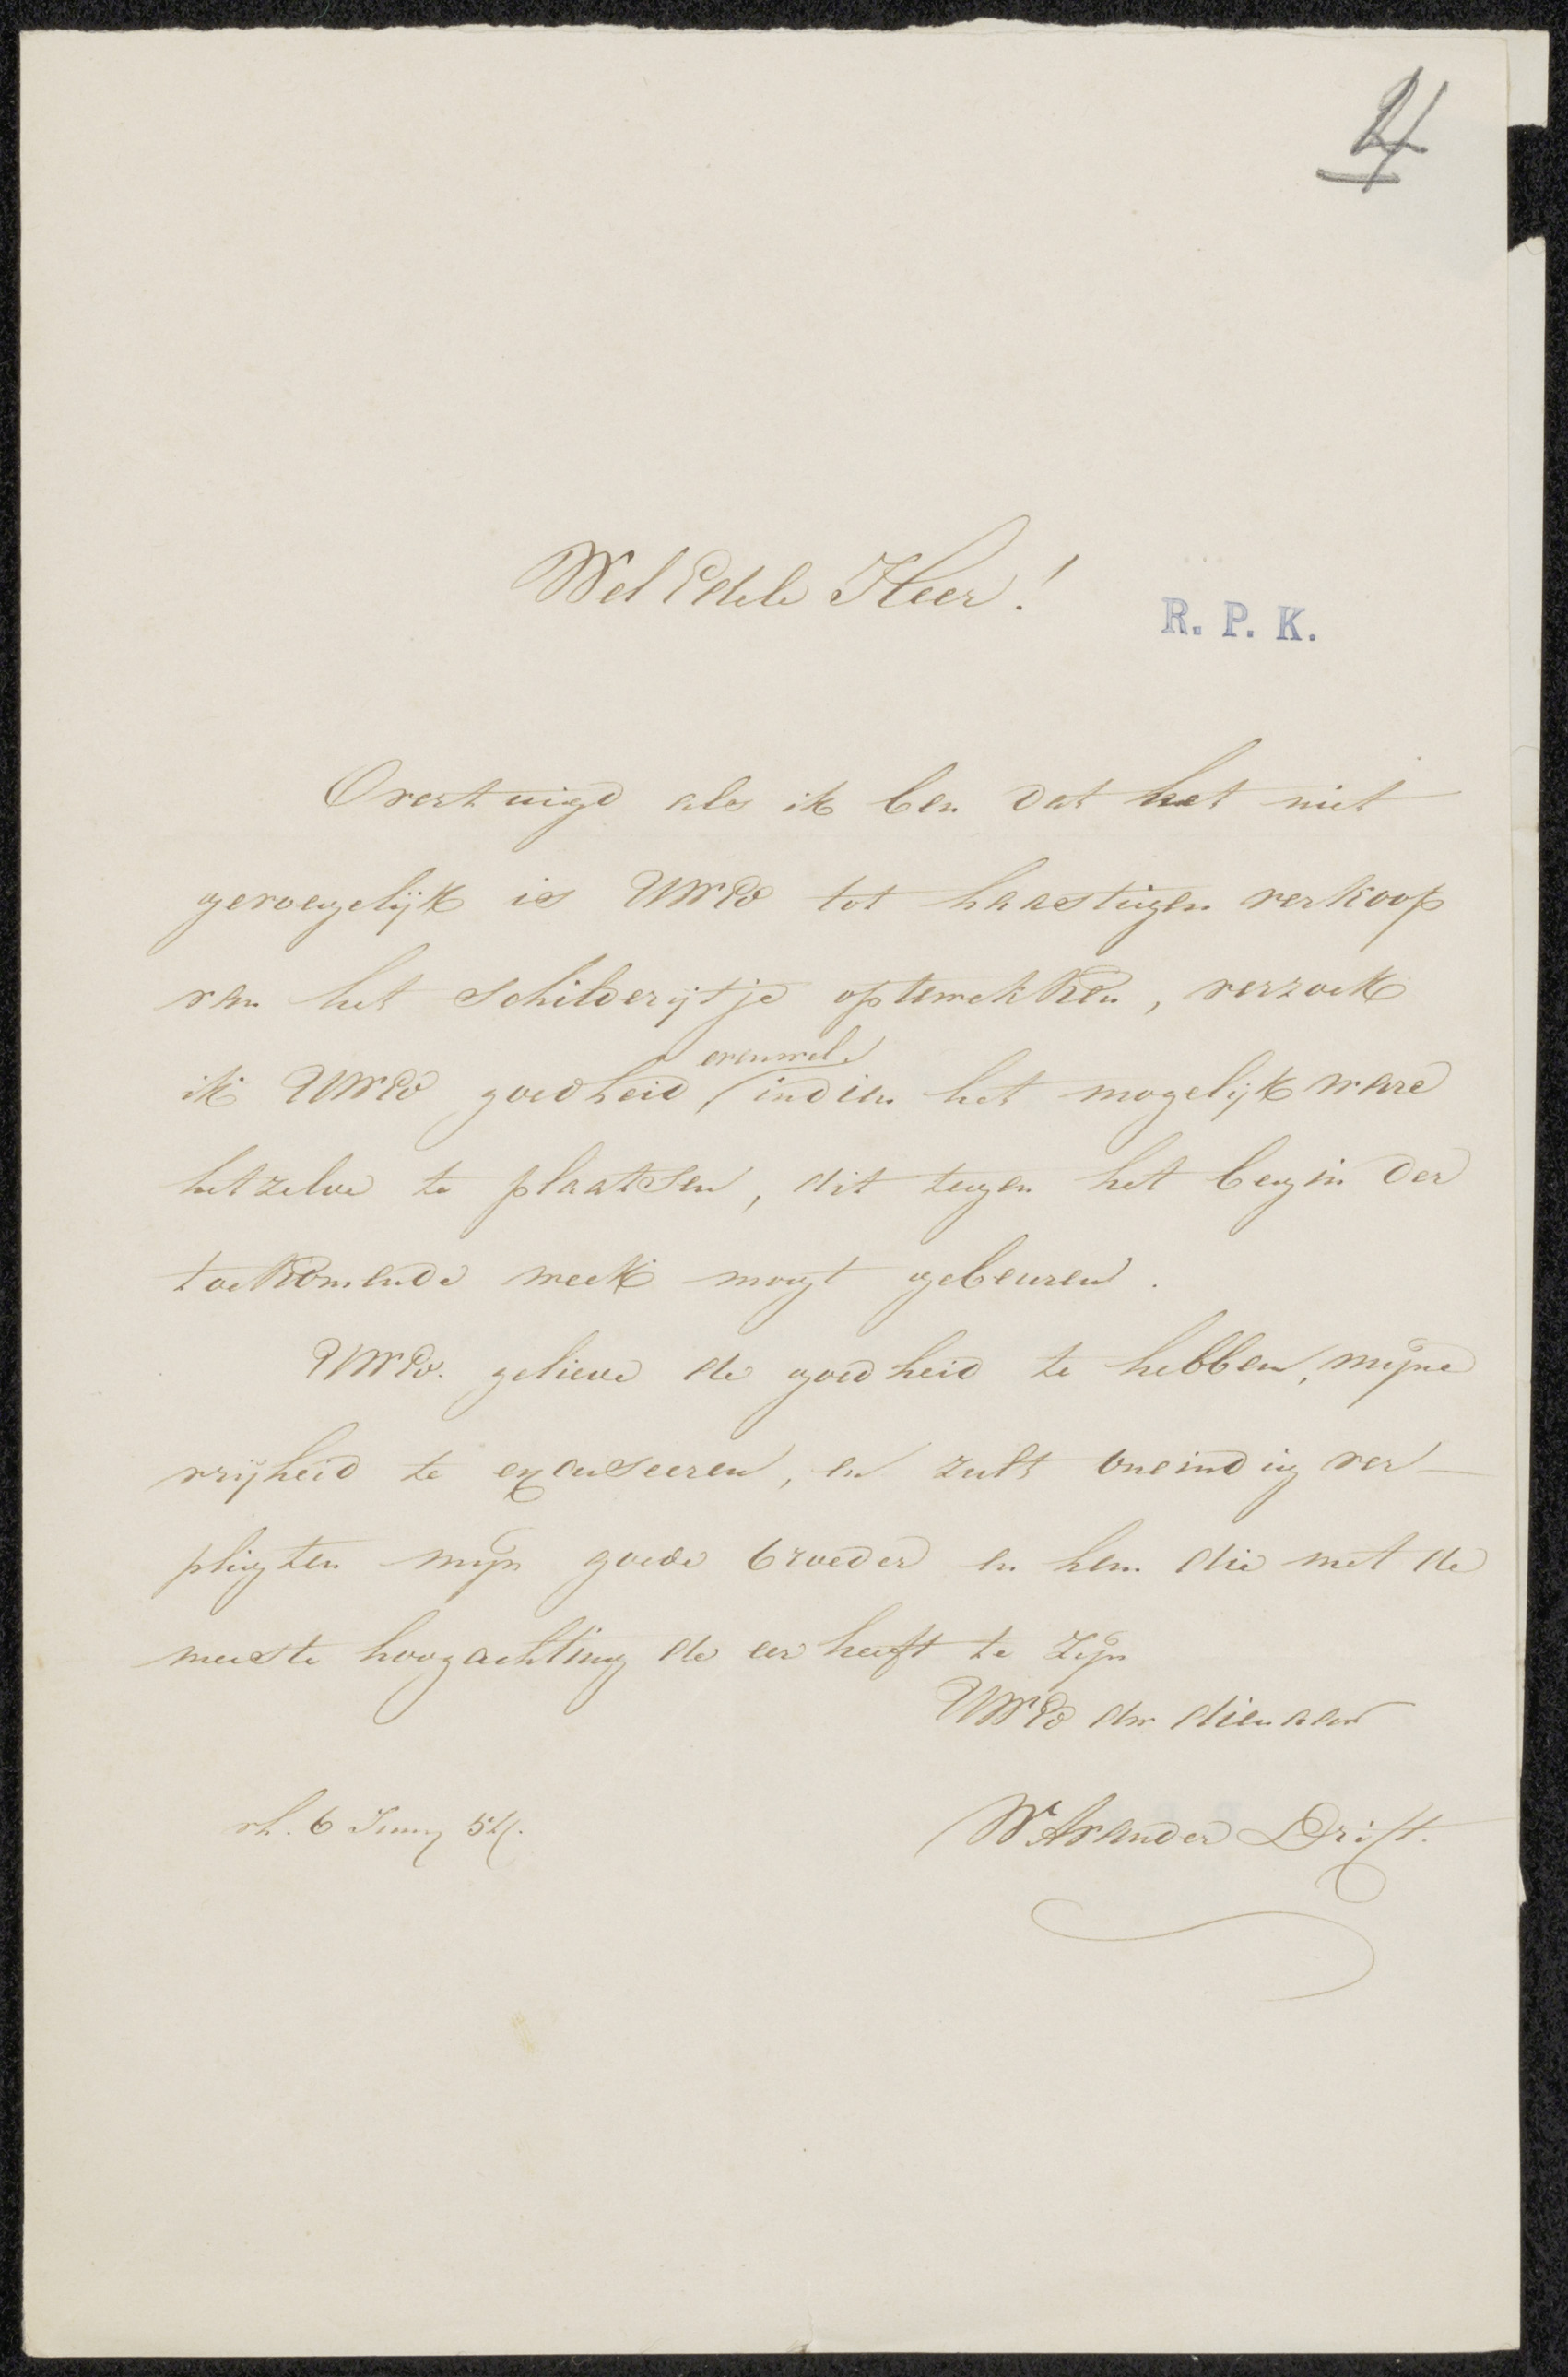 Wel Edele Heer!
R. P. K.
Overtuigd als ik ben dat het niet
gevoegelijk is UWEd tot haastigen verkoop
van het schilderijtje optewekken, verzoek
evenwel
ik UWEd goedheid, indien het mogelijk ware
hetzelve te plaatsen, dit tegen het begin der
toekomende week mogt gebeuren.
UWEd. gelieve de goedheid te hebben, mijne
vrijheid te excuseeren, en zult oneindig ver-
pligten mijn goede broeder en hem die met de
meeste hoogachting de eer heeft te zijn
UWEd dw dienaar
6 Juny 54.
W. A. vander Drift.